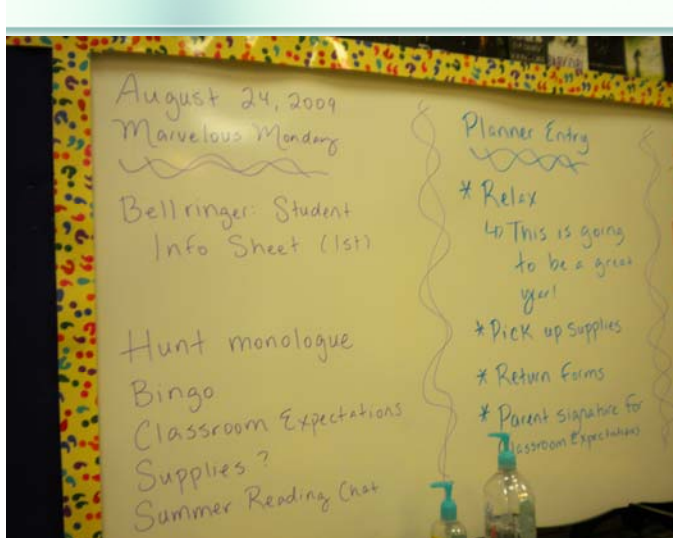 August 24, 2009
Marvelous Monday
Bellringer: Student
Info Sheet (1st)
Hunt monologue
Bingo
Classroom Expectations
Supplies?
Summer Reading Chat
Planner Entry
* Relax
↳ This is going
to be a great
year!
* Pick up supplies
* Return forms
* Parent signature for
Classroom Expectations